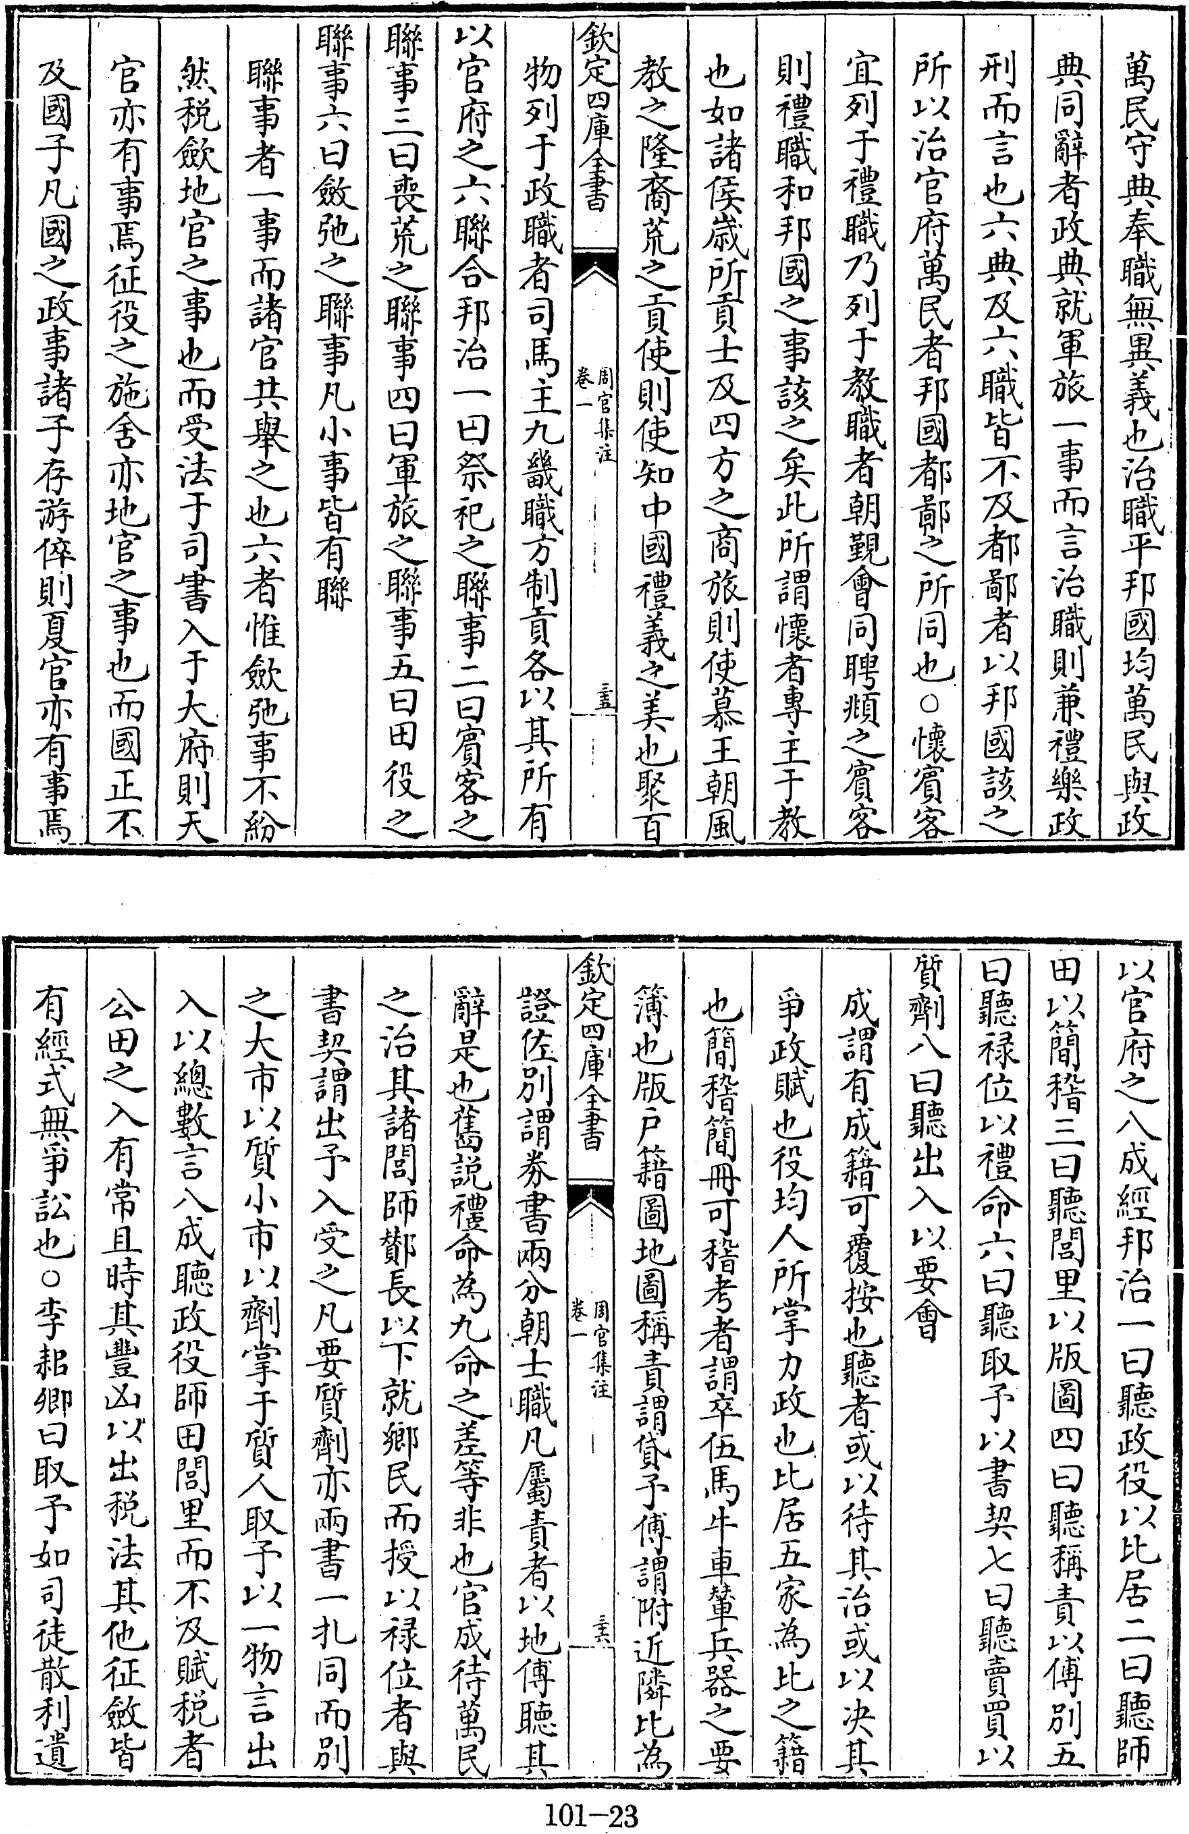 萬民守典奉職無異義也治職平邦國均萬民與政
典同辭者政典就軍旅一事而言治職則兼禮樂政
刑而言也六典及六職皆不及都鄙者以邦國該之
所以治官府萬民者邦國都鄙之所同也○懷賓客
宜列于禮職乃列于教職者朝覲會同聘頫之賓客
則禮職和邦國之事該之矣此所謂懷者專主于教
也如諸侯歳所貢士及四方之商旅則使慕王朝風
教之隆裔荒之貢使則使知中國禮義之美也聚百
欽定四庫全書
周官集注
卷一
三五
物列于政職者司馬主九畿職方制貢各以其所有
以官府之六聯合邦治一曰祭祀之聯事二曰賓客之
聯事三曰喪荒之聯事四曰軍旅之聯事五曰田役之
聯事六曰斂弛之聯事凡小事皆有聯
聯事者一事而諸官共舉之也六者惟斂弛事不紛
然税斂地官之事也而受法于司書入于大府則天
官亦有事焉征役之施舍亦地官之事也而國正不
及國子凡國之政事諸子存游倅則夏官亦有事焉
以官府之八成經邦治一曰聽政役以比居二曰聽師
田以簡稽三曰聽閭里以版圖四曰聽稱責以傅別五
曰聽禄位以禮命六曰聽取予以書契七曰聽賣買以
質劑八曰聽出入以要會
成謂有成籍可覆按也聽者或以待其治或以决其
爭政賦也役均人所掌力政也比居五家為比之籍
也簡稽簡冊可稽考者謂卒伍馬牛車輦兵器之要
簿也版户籍圖地圖稱責謂貸予傅謂附近隣比為
欽定四庫全書
周官集注
卷一
三六
證佐别謂券書兩分朝士職凡屬責者以地傅聽其
辭是也舊説禮命為九命之差等非也官成待萬民
之治其諸閭師鄼長以下就鄉民而授以禄位者與
書契謂出予入受之凡要質劑亦兩書一扎同而别
之大市以質小市以劑掌于質人取予以一物言出
入以總數言八成聽政役師田閭里而不及賦税者
公田之入有常且時其豐凶以出税法其他征斂皆
有經式無爭訟也○李耜卿曰取予如司徒散利遺
101-23